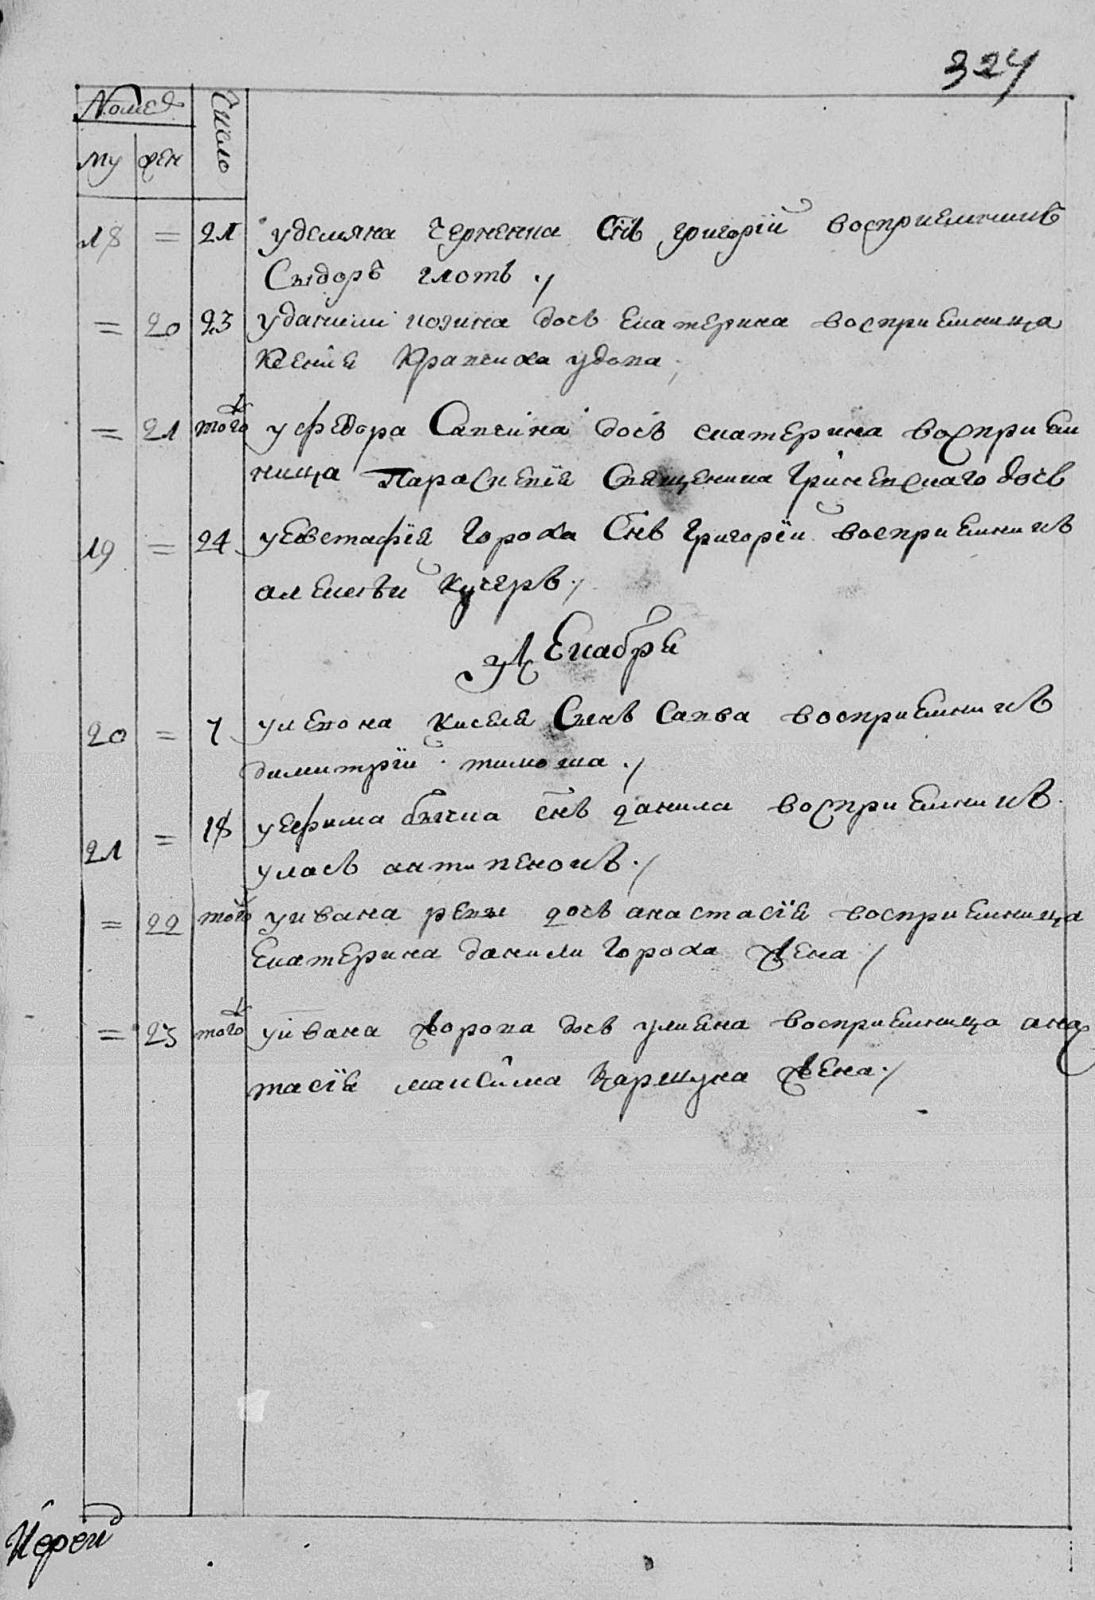 324
Номер
Число
му жен
18 = 21 у демяна Черненка Снъ григорїй восприемникъ
Сыдоръ глотъ
= 20 23 у данили дочь екатерина восприемница
Ксенїя удова
= 21 того у федора дочь екатерина восприем
ница Параскевїя Священика Гричевскаго дочь
19 = 24 у евстафїя Гороха Снъ Григорїй восприемникъ
алексѣй Кучеръ
Декабря
20 = 7 у леона Киселя Снъ Савва восприемникъ
димитрїй тимоша
21 = 18 у ефима бычка снъ данила восприемникъ
уласъ антипенокъ
= 22 того у ивана репы дочь анастасїя восприемница
Екатерина данили Гороха жена
= 23 того у ивана дочь улияна восприемница анас
тасїя максима жена
Иерей